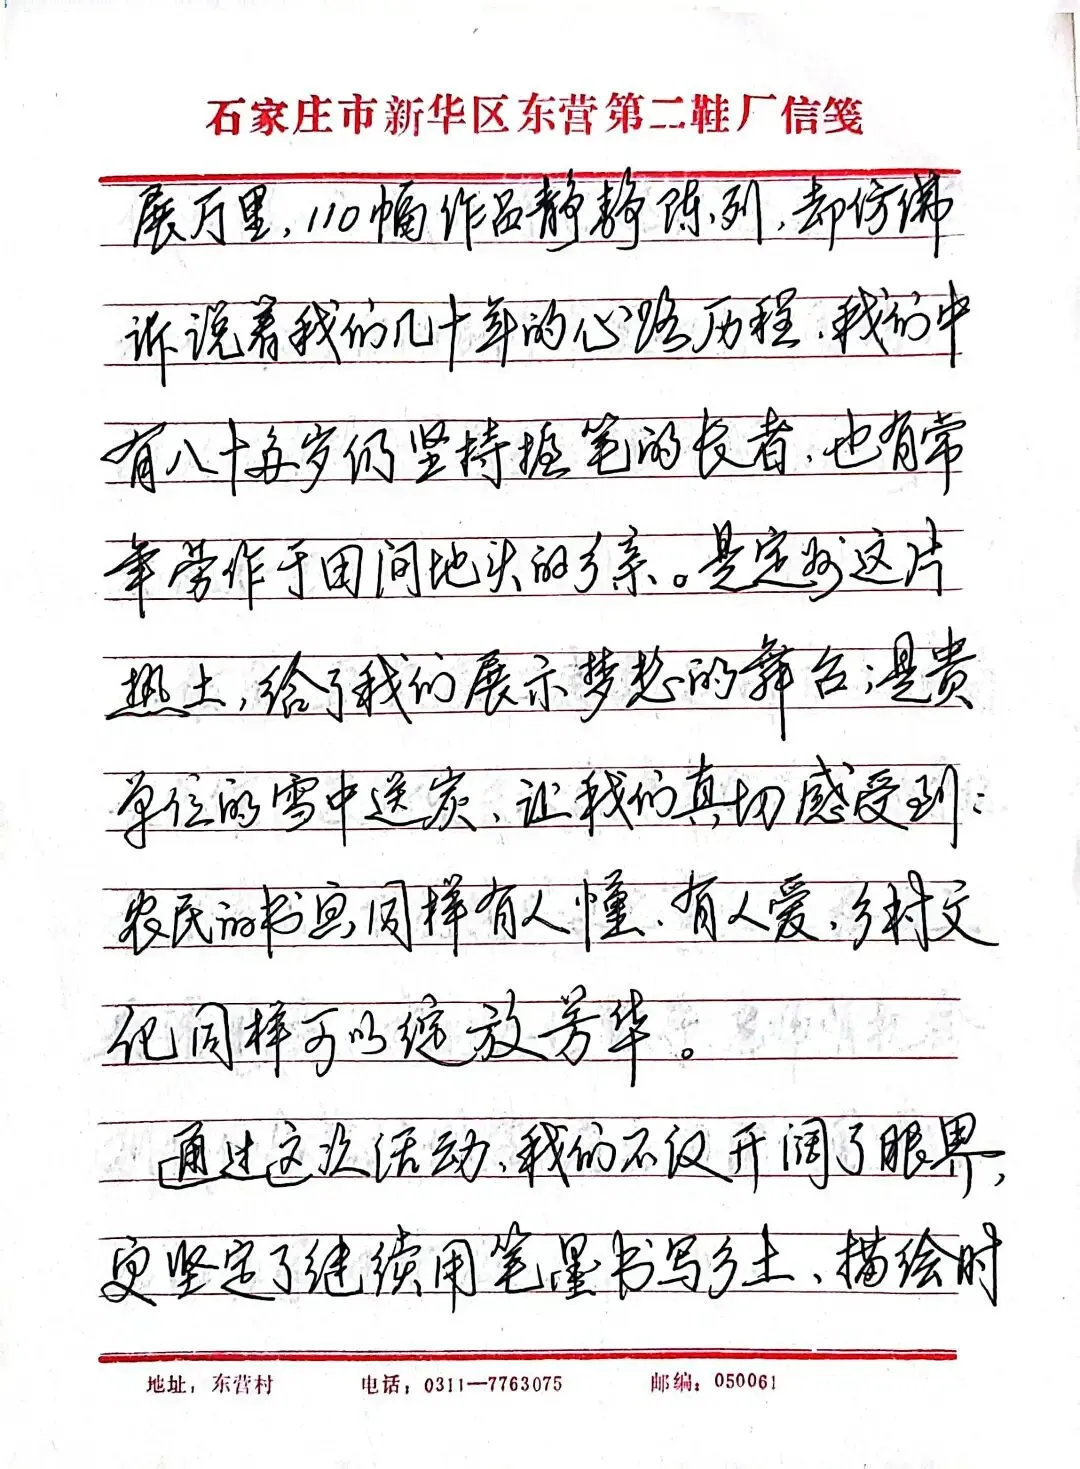 石家庄市新华区东营第二鞋厂信笺
展厅里，110幅作品静静陈列，却仿佛
诉说着我们几十年的心路历程，我们中
有八十多岁仍坚持握笔的长者，也有常
年劳作于田间地头的乡亲。是定州这片
热土，给了我们展示梦想的舞台；是贵
单位的雪中送炭，让我们真切感受到：
农民的书画同样有人懂、有人爱，乡村文
化同样可以绽放芳华。
通过这次活动，我们不仅开阔了眼界，
更坚定了继续用笔墨书写乡土、描绘时
地址：东营村 电话：0311—7763075 邮编：050061